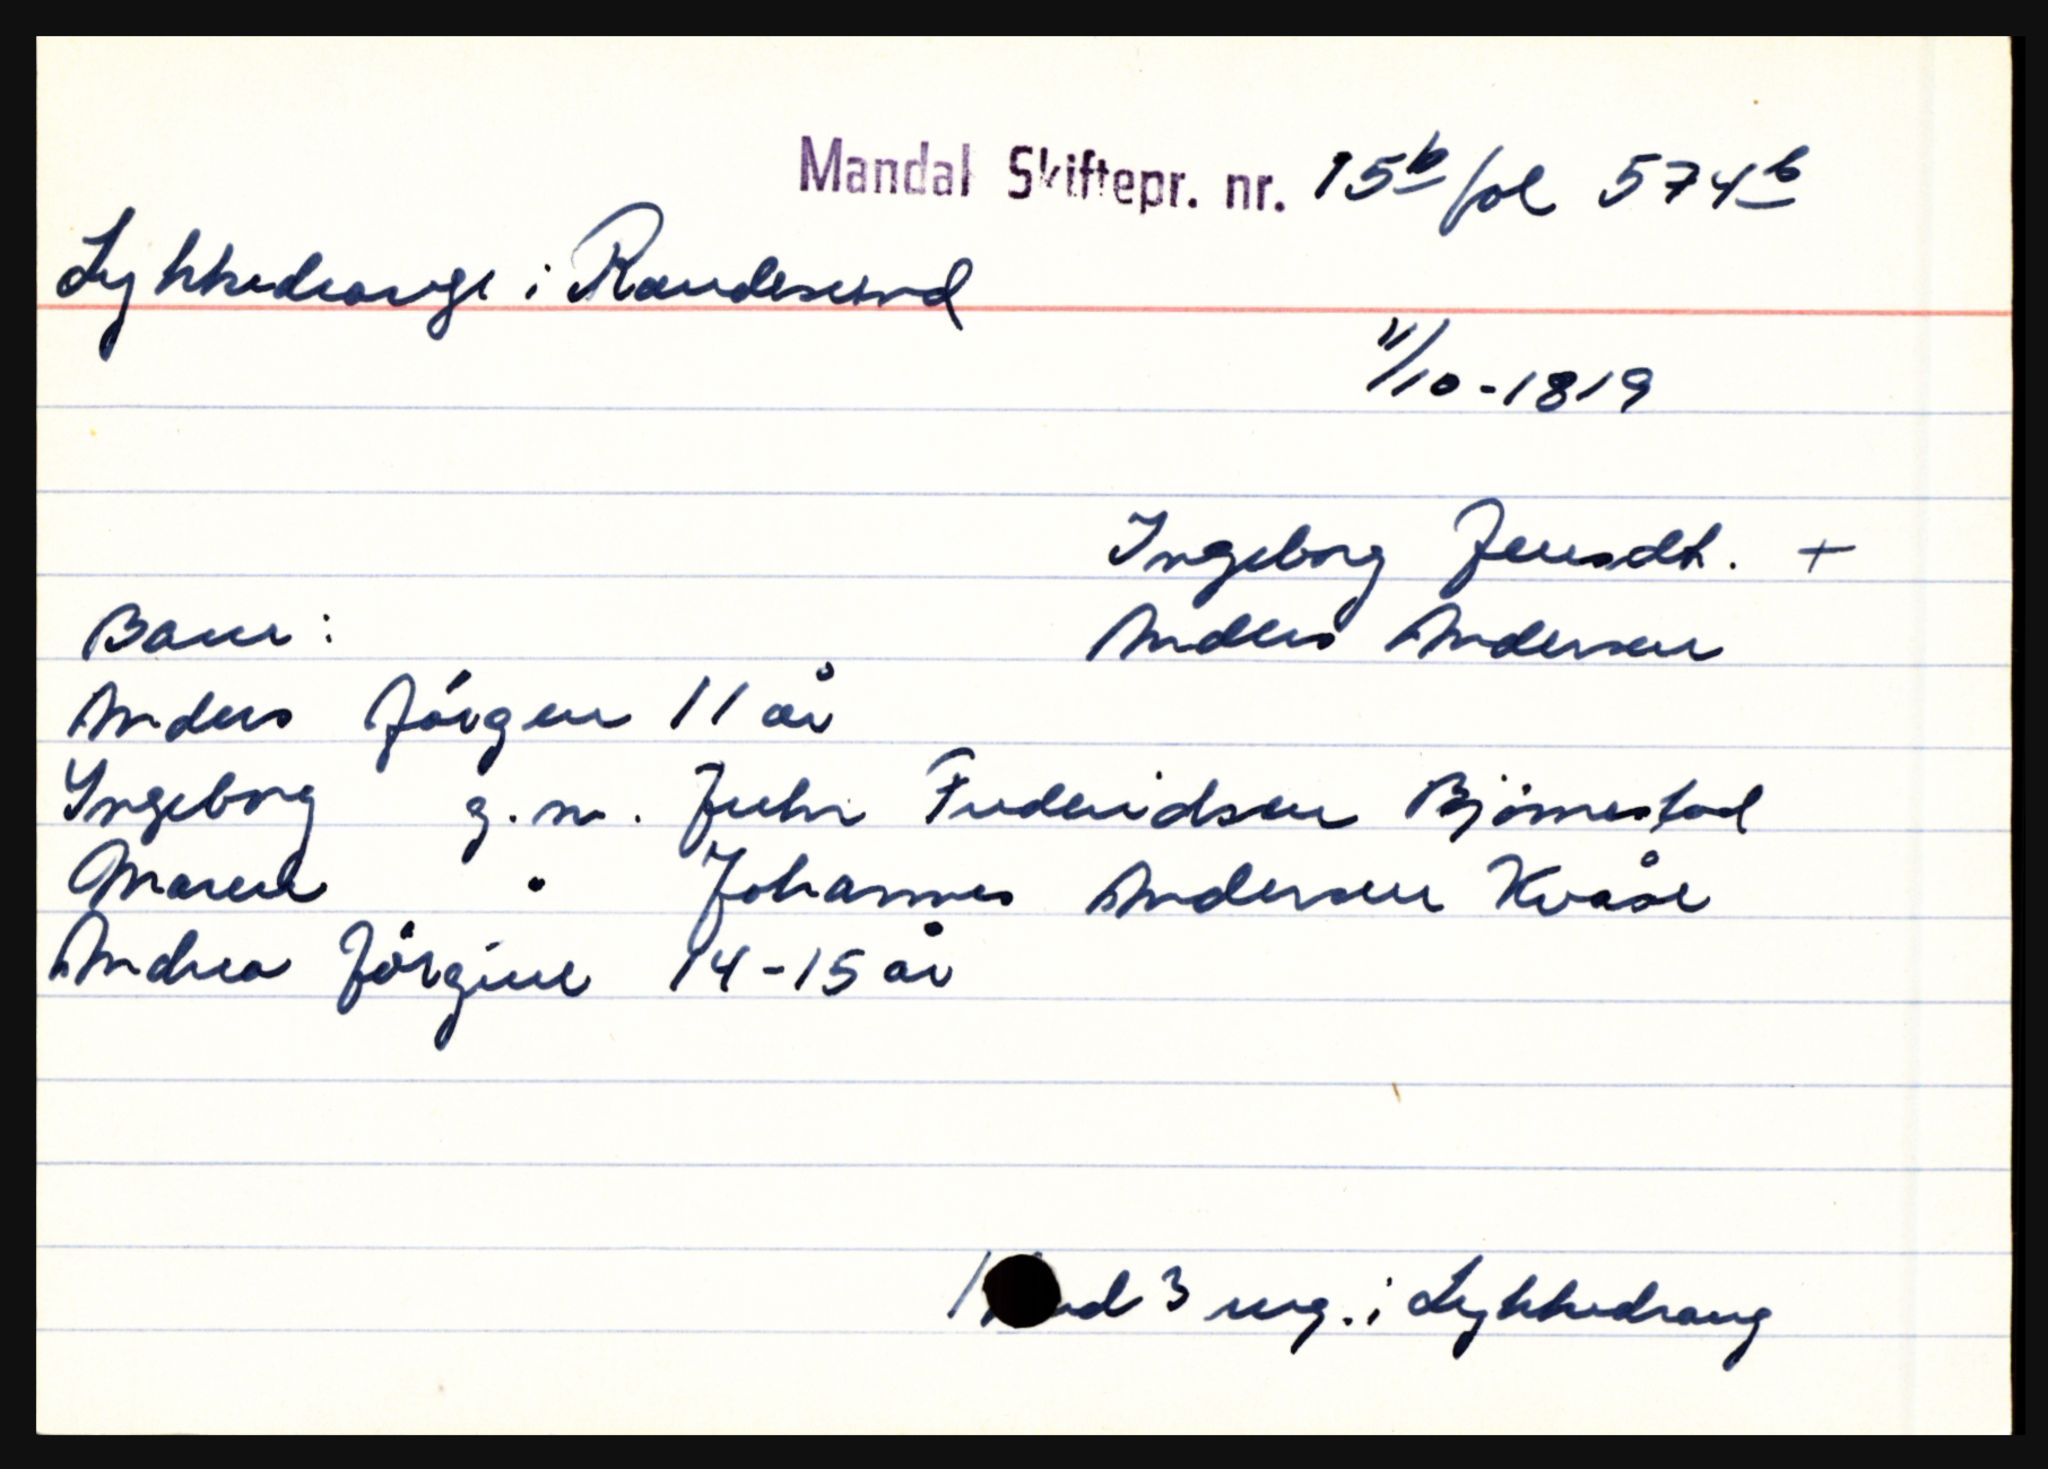 Mandal Skiftepr. nr. 15b fol 574b
Lykkedrange i Randesund
11/10-1819
Ingeborg Jensdt. +
Barn: Anders Andersen
Anders Jörgen 11 år
Ingeborg g. m. Jens Frederidsen Björnestad
Maren " Johannes Andersen Kvåse
Andrea Jörgine 14-15 år
3 eng. i Lykkedrang